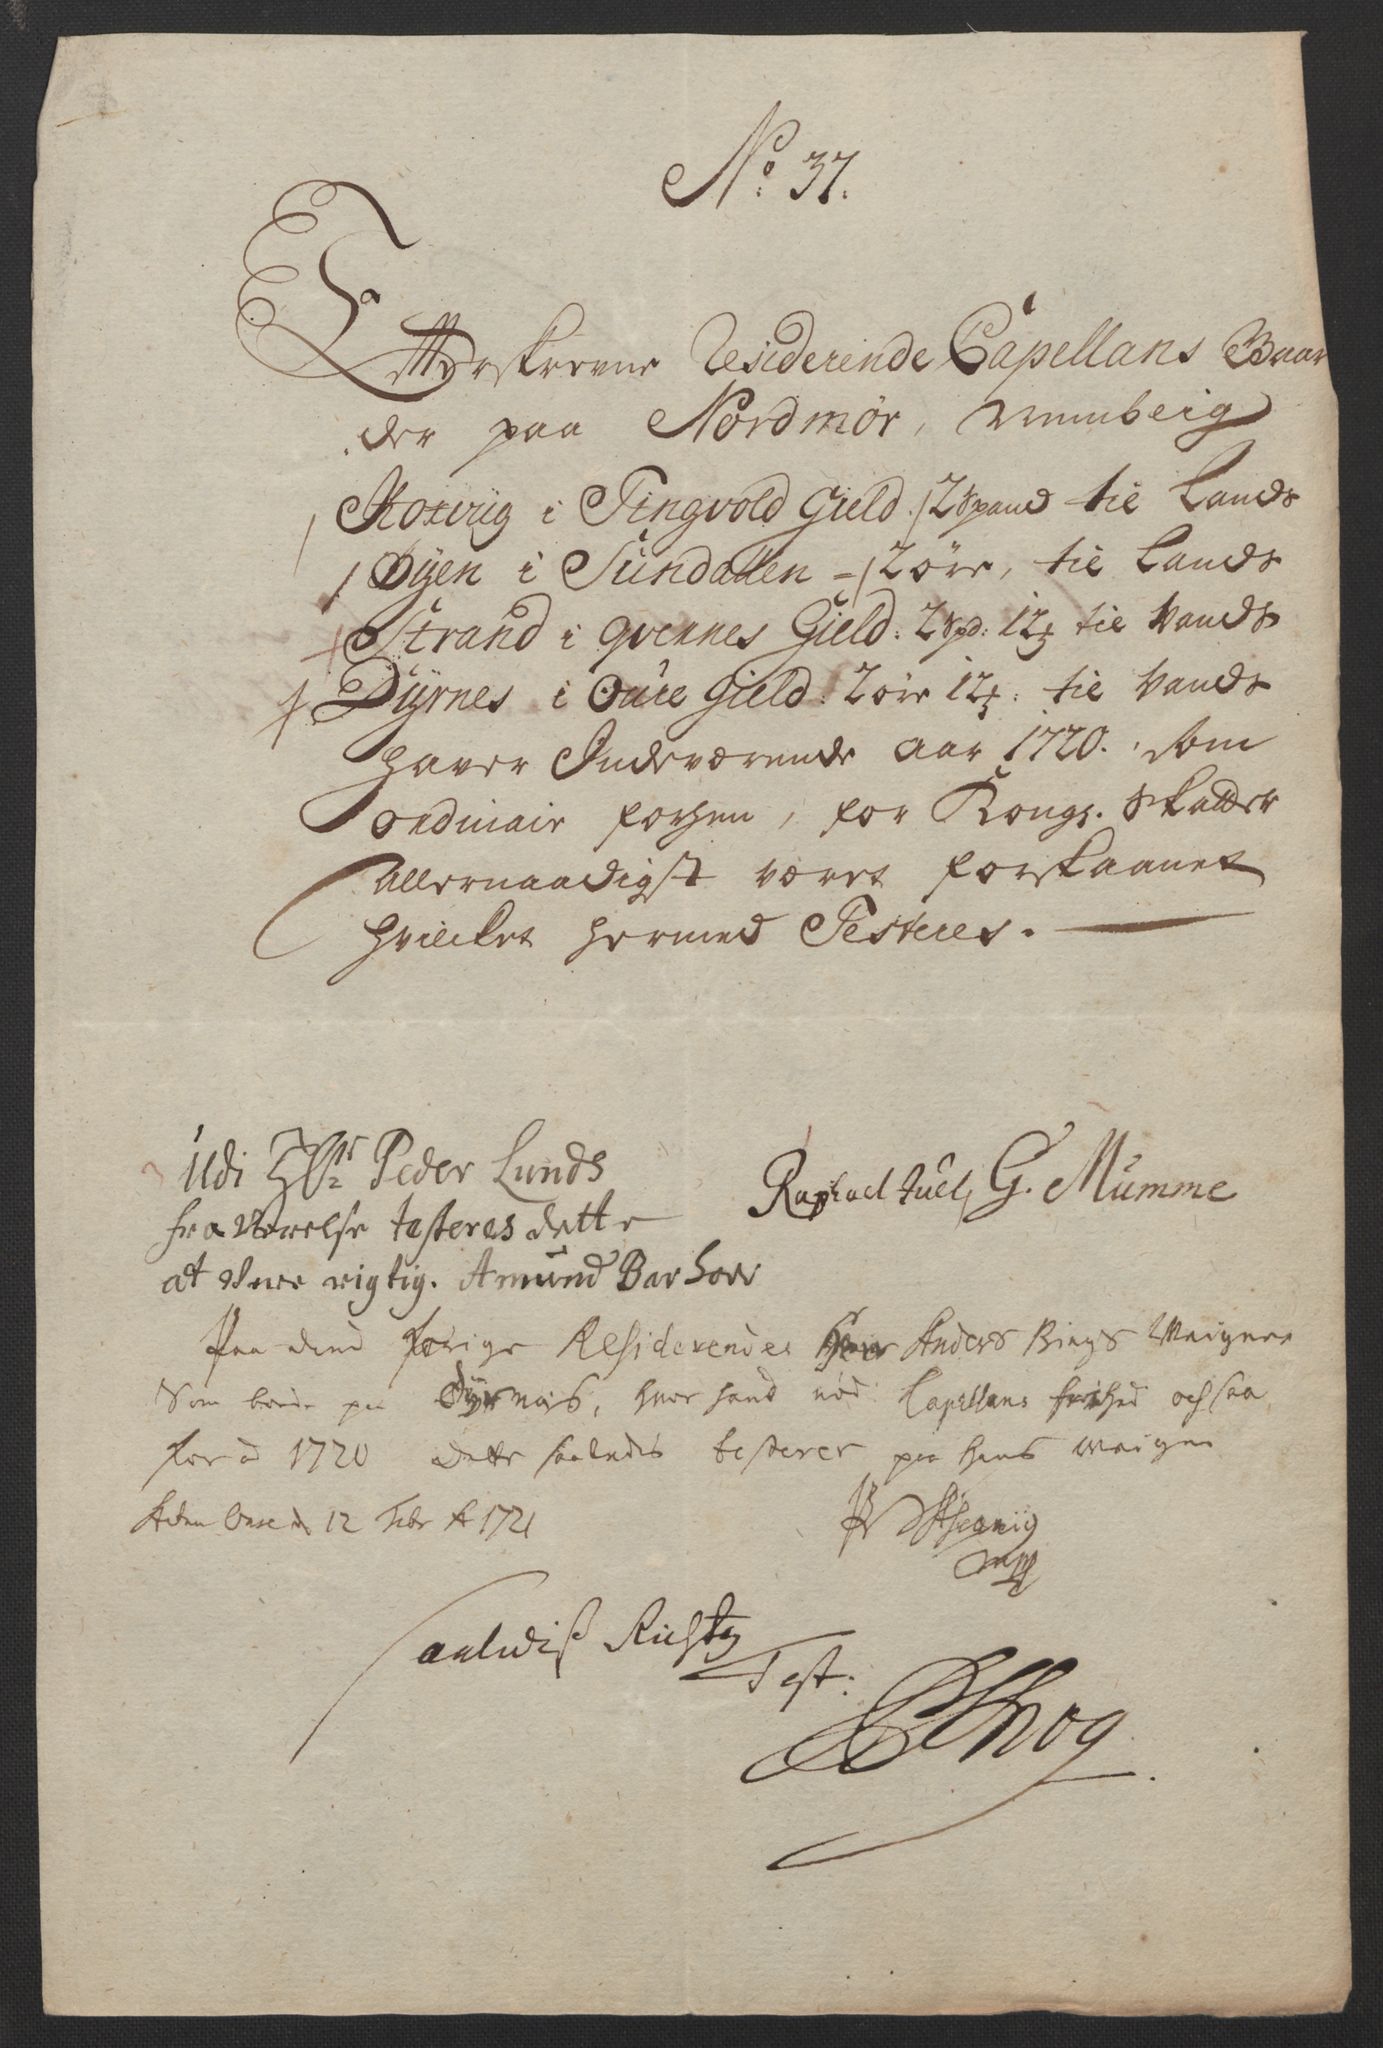 No: 37.
Effterskrevne Residerende Capellans Gaar
der paa Nordmør,
i Tingvold Gield. 2 Spand til Lands
Øyen i Sundallen - 2 Øre, til Lands
Strand i Qvennes Gield: 2 Spd: 12 til Vands
Dyrnes i Oure Gield: 2 Øre 12: til Vands
Haver Indeværende Aar 1720. som
ordinair forhen, for Kongs. Skatter
Allernaadigst været forskaanet
Hvilcket hermed Testeres.
Udi Hr Peder Lunds
fraværelse testeres dette
at være rigtig. Amund Barhoee
Raphael Juel, G. Mumme
Paa dend forige Residerendes Herr Anders Bings Weigne
Som boede paa Dyrnæs, hvor hand nød Capellans frihed och saa
for a 1720 dette saaledes testerer paa hans weigne
12 Febr A 1721
Saaledis Richtig
Test: